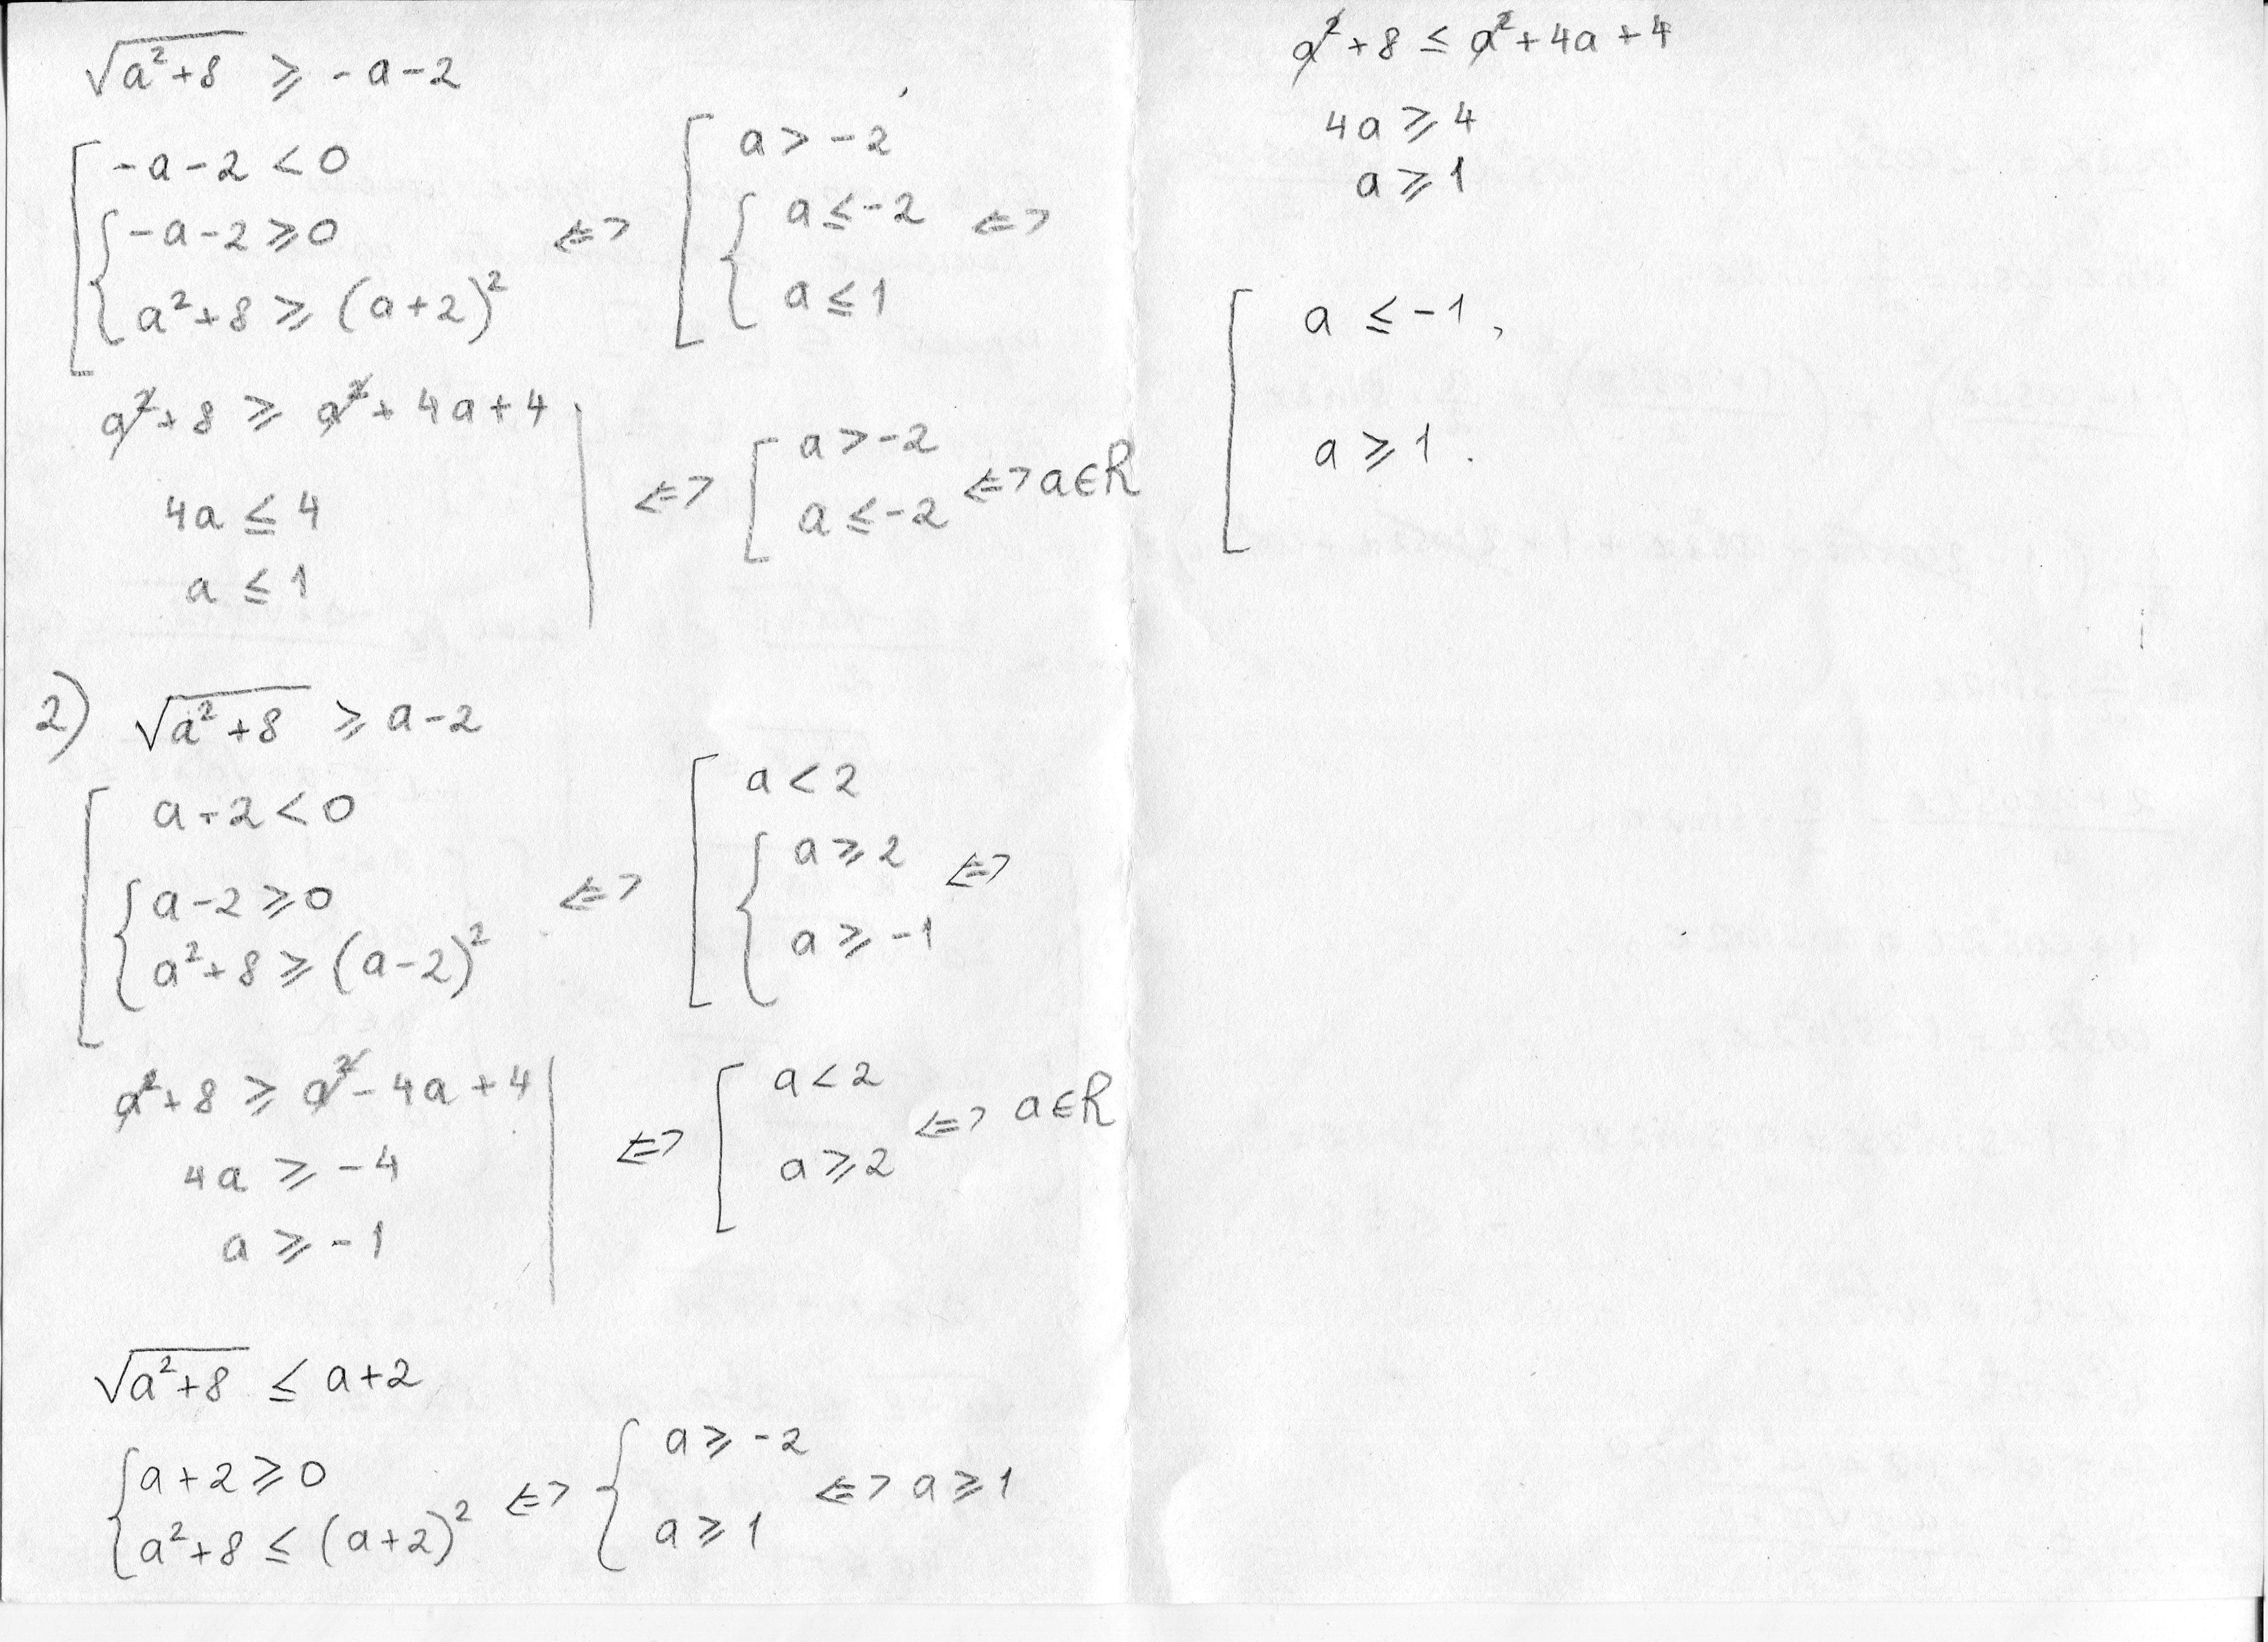 √(a²+8) ⩾ -a-2
[ -a-2 < 0
{ -a-2 ⩾ 0
a²+8 ⩾ (a+2)²
<=>
[ a > -2
{ a ≤ -2
a ≤ 1
<=>
a²+8 ⩾ a²+4a+4
4a ≤ 4
a ≤ 1
<=> [ a > -2
a ≤ -2
<=> a∈R
2) √(a²+8) ⩾ a-2
[ a-2 < 0
{ a-2 ⩾ 0
a²+8 ⩾ (a-2)²
<=>
[ a < 2
{ a ⩾ 2
a ⩾ -1
<=>
a²+8 ⩾ a²-4a+4
4a ⩾ -4
a ⩾ -1
<=> [ a < 2
a ⩾ 2
<=> a∈R
√(a²+8) ≤ a+2
{ a+2 ⩾ 0
a²+8 ≤ (a+2)²
<=> { a ⩾ -2
a ⩾ 1
<=> a ⩾ 1
a²+8 ≤ a²+4a+4
4a ⩾ 4
a ⩾ 1
[ a ≤ -1,
a ⩾ 1.